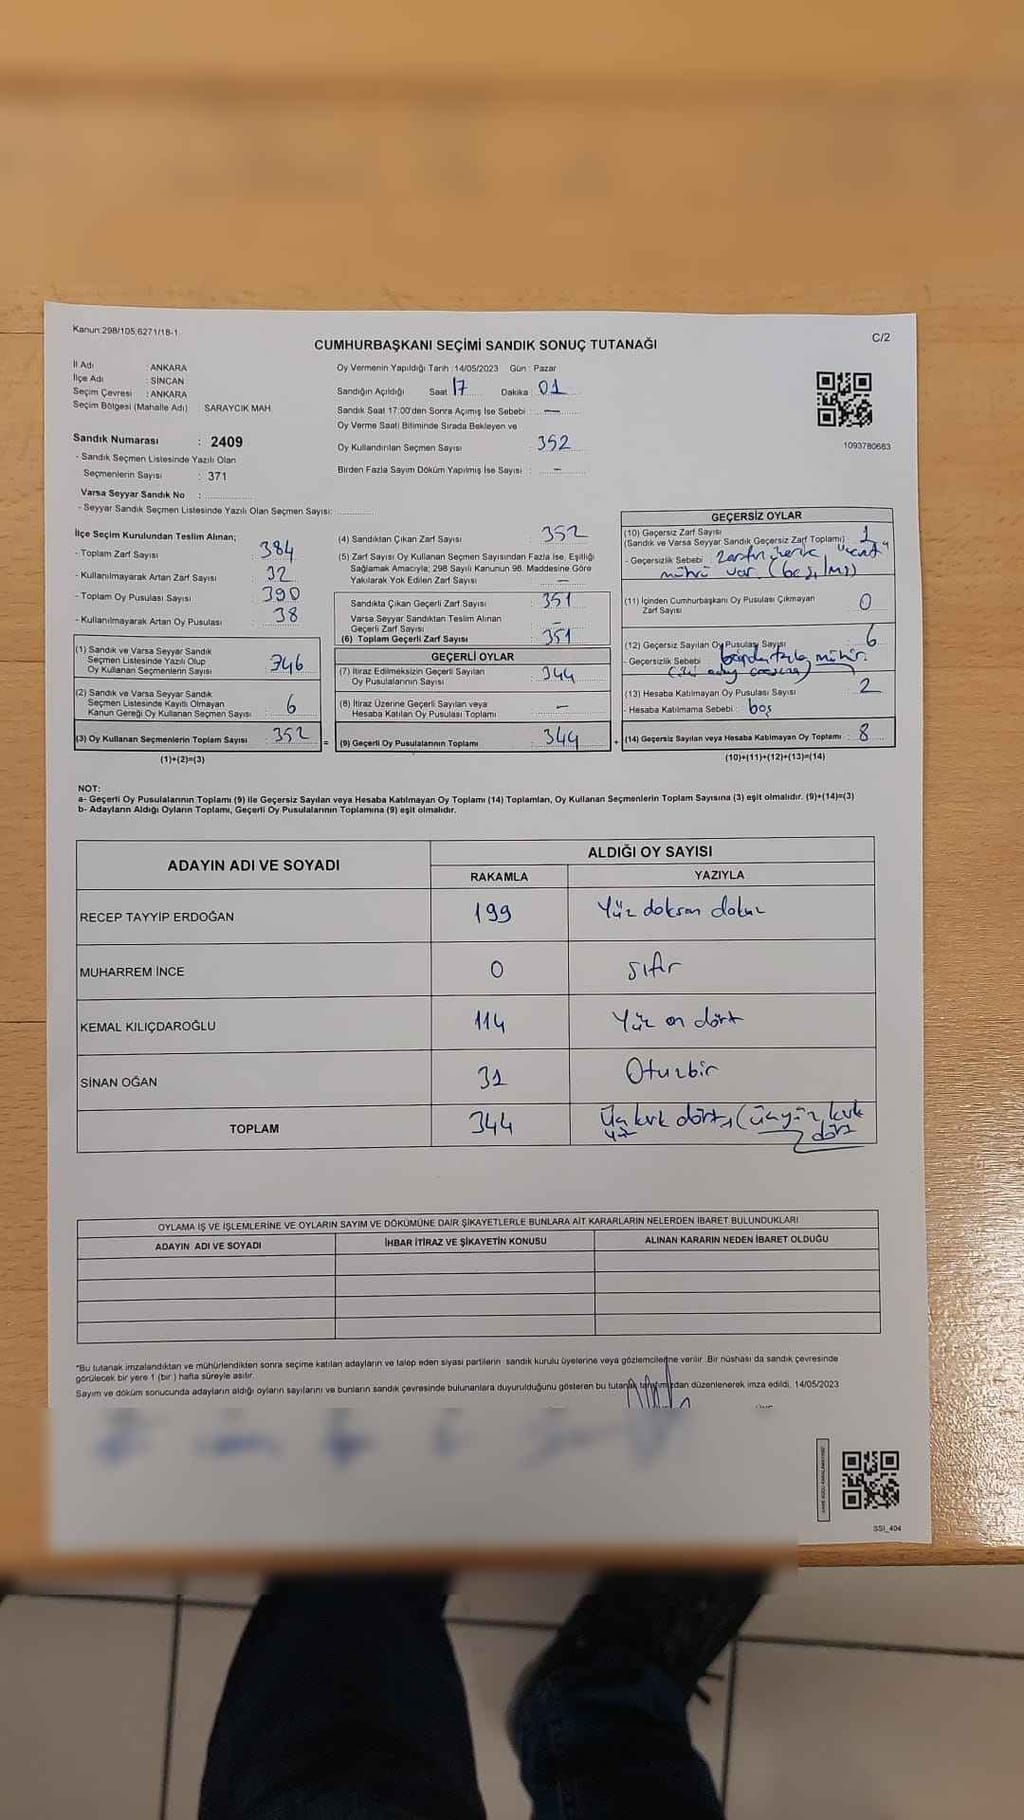 Kanun:298/105,6271/18-1
C/2
CUMHURBAŞKANI SEÇİMİ SANDIK SONUÇ TUTANAĞI
İl Adı : ANKARA
İlçe Adı : SİNCAN
Seçim Çevresi : ANKARA
Seçim Bölgesi (Mahalle Adı) : SARAYCIK MAH.
Sandık Numarası : 2409
- Sandık Seçmen Listesinde Yazılı Olan
Seçmenlerin Sayısı : 371
Varsa Seyyar Sandık No :
- Seyyar Sandık Seçmen Listesinde Yazılı Olan Seçmen Sayısı:
Oy Vermenin Yapıldığı Tarih :14/05/2023 Gün : Pazar
Sandığın Açıldığı Saat 17 Dakika : 01
Sandık Saat 17:00'den Sonra Açımış İse Sebebi : —
Oy Verme Saati Bitiminde Sırada Bekleyen ve
Oy Kullandırılan Seçmen Sayısı : 352
Birden Fazla Sayım Döküm Yapılmış İse Sayısı : -
1093780683
İlçe Seçim Kurulundan Teslim Alınan;
- Toplam Zarf Sayısı : 384
- Kullanılmayarak Artan Zarf Sayısı : 32
- Toplam Oy Pusulası Sayısı : 390
- Kullanılmayarak Artan Oy Pusulası : 38
(1) Sandık ve Varsa Seyyar Sandık
Seçmen Listesinde Yazılı Olup
Oy Kullanan Seçmenlerin Sayısı : 346
(2) Sandık ve Varsa Seyyar Sandık
Seçmen Listesinde Kayıtlı Olmayan
Kanun Gereği Oy Kullanan Seçmen Sayısı : 6
(3) Oy Kullanan Seçmenlerin Toplam Sayısı : 352
(1)+(2)=(3)
(4) Sandıktan Çıkan Zarf Sayısı : 352
(5) Zarf Sayısı Oy Kullanan Seçmen Sayısından Fazla İse, Eşitliği
Sağlamak Amacıyla; 298 Sayılı Kanunun 98. Maddesine Göre
Yakılarak Yok Edilen Zarf Sayısı : —
Sandıkta Çıkan Geçerli Zarf Sayısı : 351
Varsa Seyyar Sandıktan Teslim Alınan
Geçerli Zarf Sayısı : —
(6) Toplam Geçerli Zarf Sayısı : 351
GEÇERLİ OYLAR
(7) İtiraz Edilmeksizin Geçerli Sayılan
Oy Pusulalarının Sayısı : 344
(8) İtiraz Üzerine Geçerli Sayılan veya
Hesaba Katılan Oy Pusulası Toplamı : —
= (9) Geçerli Oy Pusulalarının Toplamı : 344
GEÇERSİZ OYLAR
(10) Geçersiz Zarf Sayısı
(Sandık ve Varsa Seyyar Sandık Geçersiz Zarf Toplamı) : 1
- Geçersizlik Sebebi :
mührü var.
(11) İçinden Cumhurbaşkanı Oy Pusulası Çıkmayan
Zarf Sayısı : 0
(12) Geçersiz Sayılan Oy Pusulası Sayısı : 6
- Geçersizlik Sebebi : birden fazla mühür.
(13) Hesaba Katılmayan Oy Pusulası Sayısı : 2
- Hesaba Katılmama Sebebi : boş
+ (14) Geçersiz Sayılan veya Hesaba Katılmayan Oy Toplamı : 8
(10)+(11)+(12)+(13)=(14)
NOT:
a- Geçerli Oy Pusulalarının Toplamı (9) ile Geçersiz Sayılan veya Hesaba Katılmayan Oy Toplamı (14) Toplamları, Oy Kullanan Seçmenlerin Toplam Sayısına (3) eşit olmalıdır. (9)+(14)=(3)
b- Adayların Aldığı Oyların Toplamı, Geçerli Oy Pusulalarının Toplamına (9) eşit olmalıdır.
ADAYIN ADI VE SOYADI
ALDIĞI OY SAYISI
RAKAMLA YAZIYLA
RECEP TAYYİP ERDOĞAN 199 Yüz doksan dokuz
MUHARREM İNCE 0 sıfır
KEMAL KILIÇDAROĞLU 114 Yüz on dört
SİNAN OĞAN 31 Oturbir
TOPLAM 344 Üç yüz kırk dört (üçyüz kırk
dört
OYLAMA İŞ VE İŞLEMLERİNE VE OYLARIN SAYIM VE DÖKÜMÜNE DAİR ŞİKAYETLERLE BUNLARA AİT KARARLARIN NELERDEN İBARET BULUNDUKLARI
ADAYIN ADI VE SOYADI İHBAR İTİRAZ VE ŞİKAYETİN KONUSU ALINAN KARARIN NEDEN İBARET OLDUĞU
*Bu tutanak imzalandıktan ve mühürlendikten sonra seçime katılan adayların ve talep eden siyasi partilerin sandık kurulu üyelerine veya gözlemcilerine verilir. Bir nüshası da sandık çevresinde
görülecek bir yere 1 (bir ) hafta süreyle asılır.
Sayım ve döküm sonucunda adayların aldığı oyların sayılarını ve bunların sandık çevresinde bulunanlara duyurulduğunu gösteren bu tutanak tarafımızdan düzenlenerek imza edildi. 14/05/2023
SSI_404